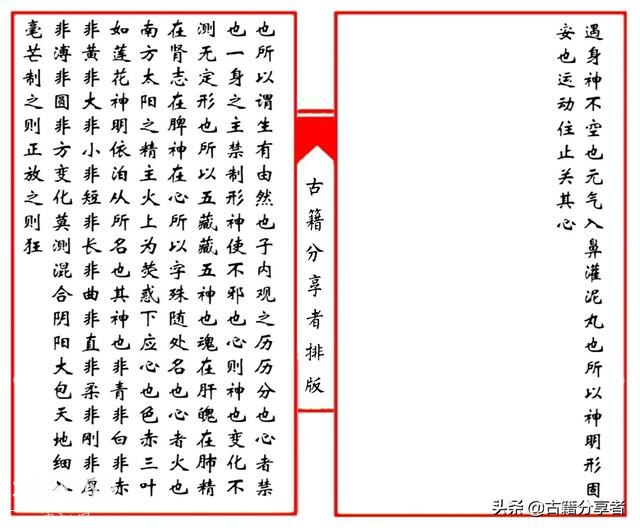 遇身神不空也元气入鼻灌泥丸也所以神明形固
安也运动住止关其心
古籍分享者排版
也所以谓生有由然也子内观之历历分也心者禁
也一身之主禁制形神使不邪也心则神也变化不
测无定形也所以五藏藏五神也魂在肝魄在肺精
在肾志在脾神在心所以字殊随处名也心者火也
南方太阳之精主火上为荧惑下应心也色赤三叶
如莲花神明依泊从所名也其神也非青非白非赤
非黄非大非小非短非长非曲非直非柔非刚非厚
非薄非圆非方变化莫测混合阴阳大包天地细入
毫芒制之则正放之则狂
头条 @古籍分享者